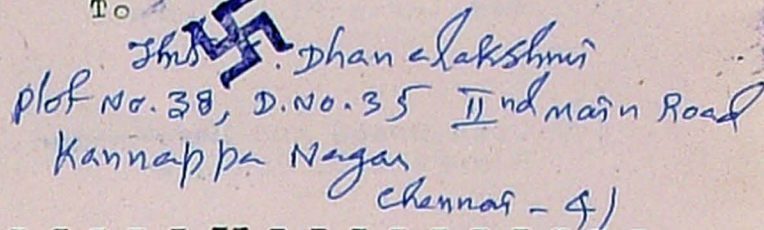 To
Dhanalakshmi
Plot No. 38, D.No. 35 IInd main Road
Kannappa Nagar
Chennai - 41